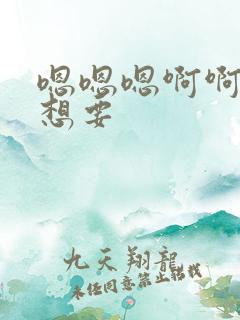 嗯嗯嗯啊啊
想要
九天翔龍
未经同意禁止转载